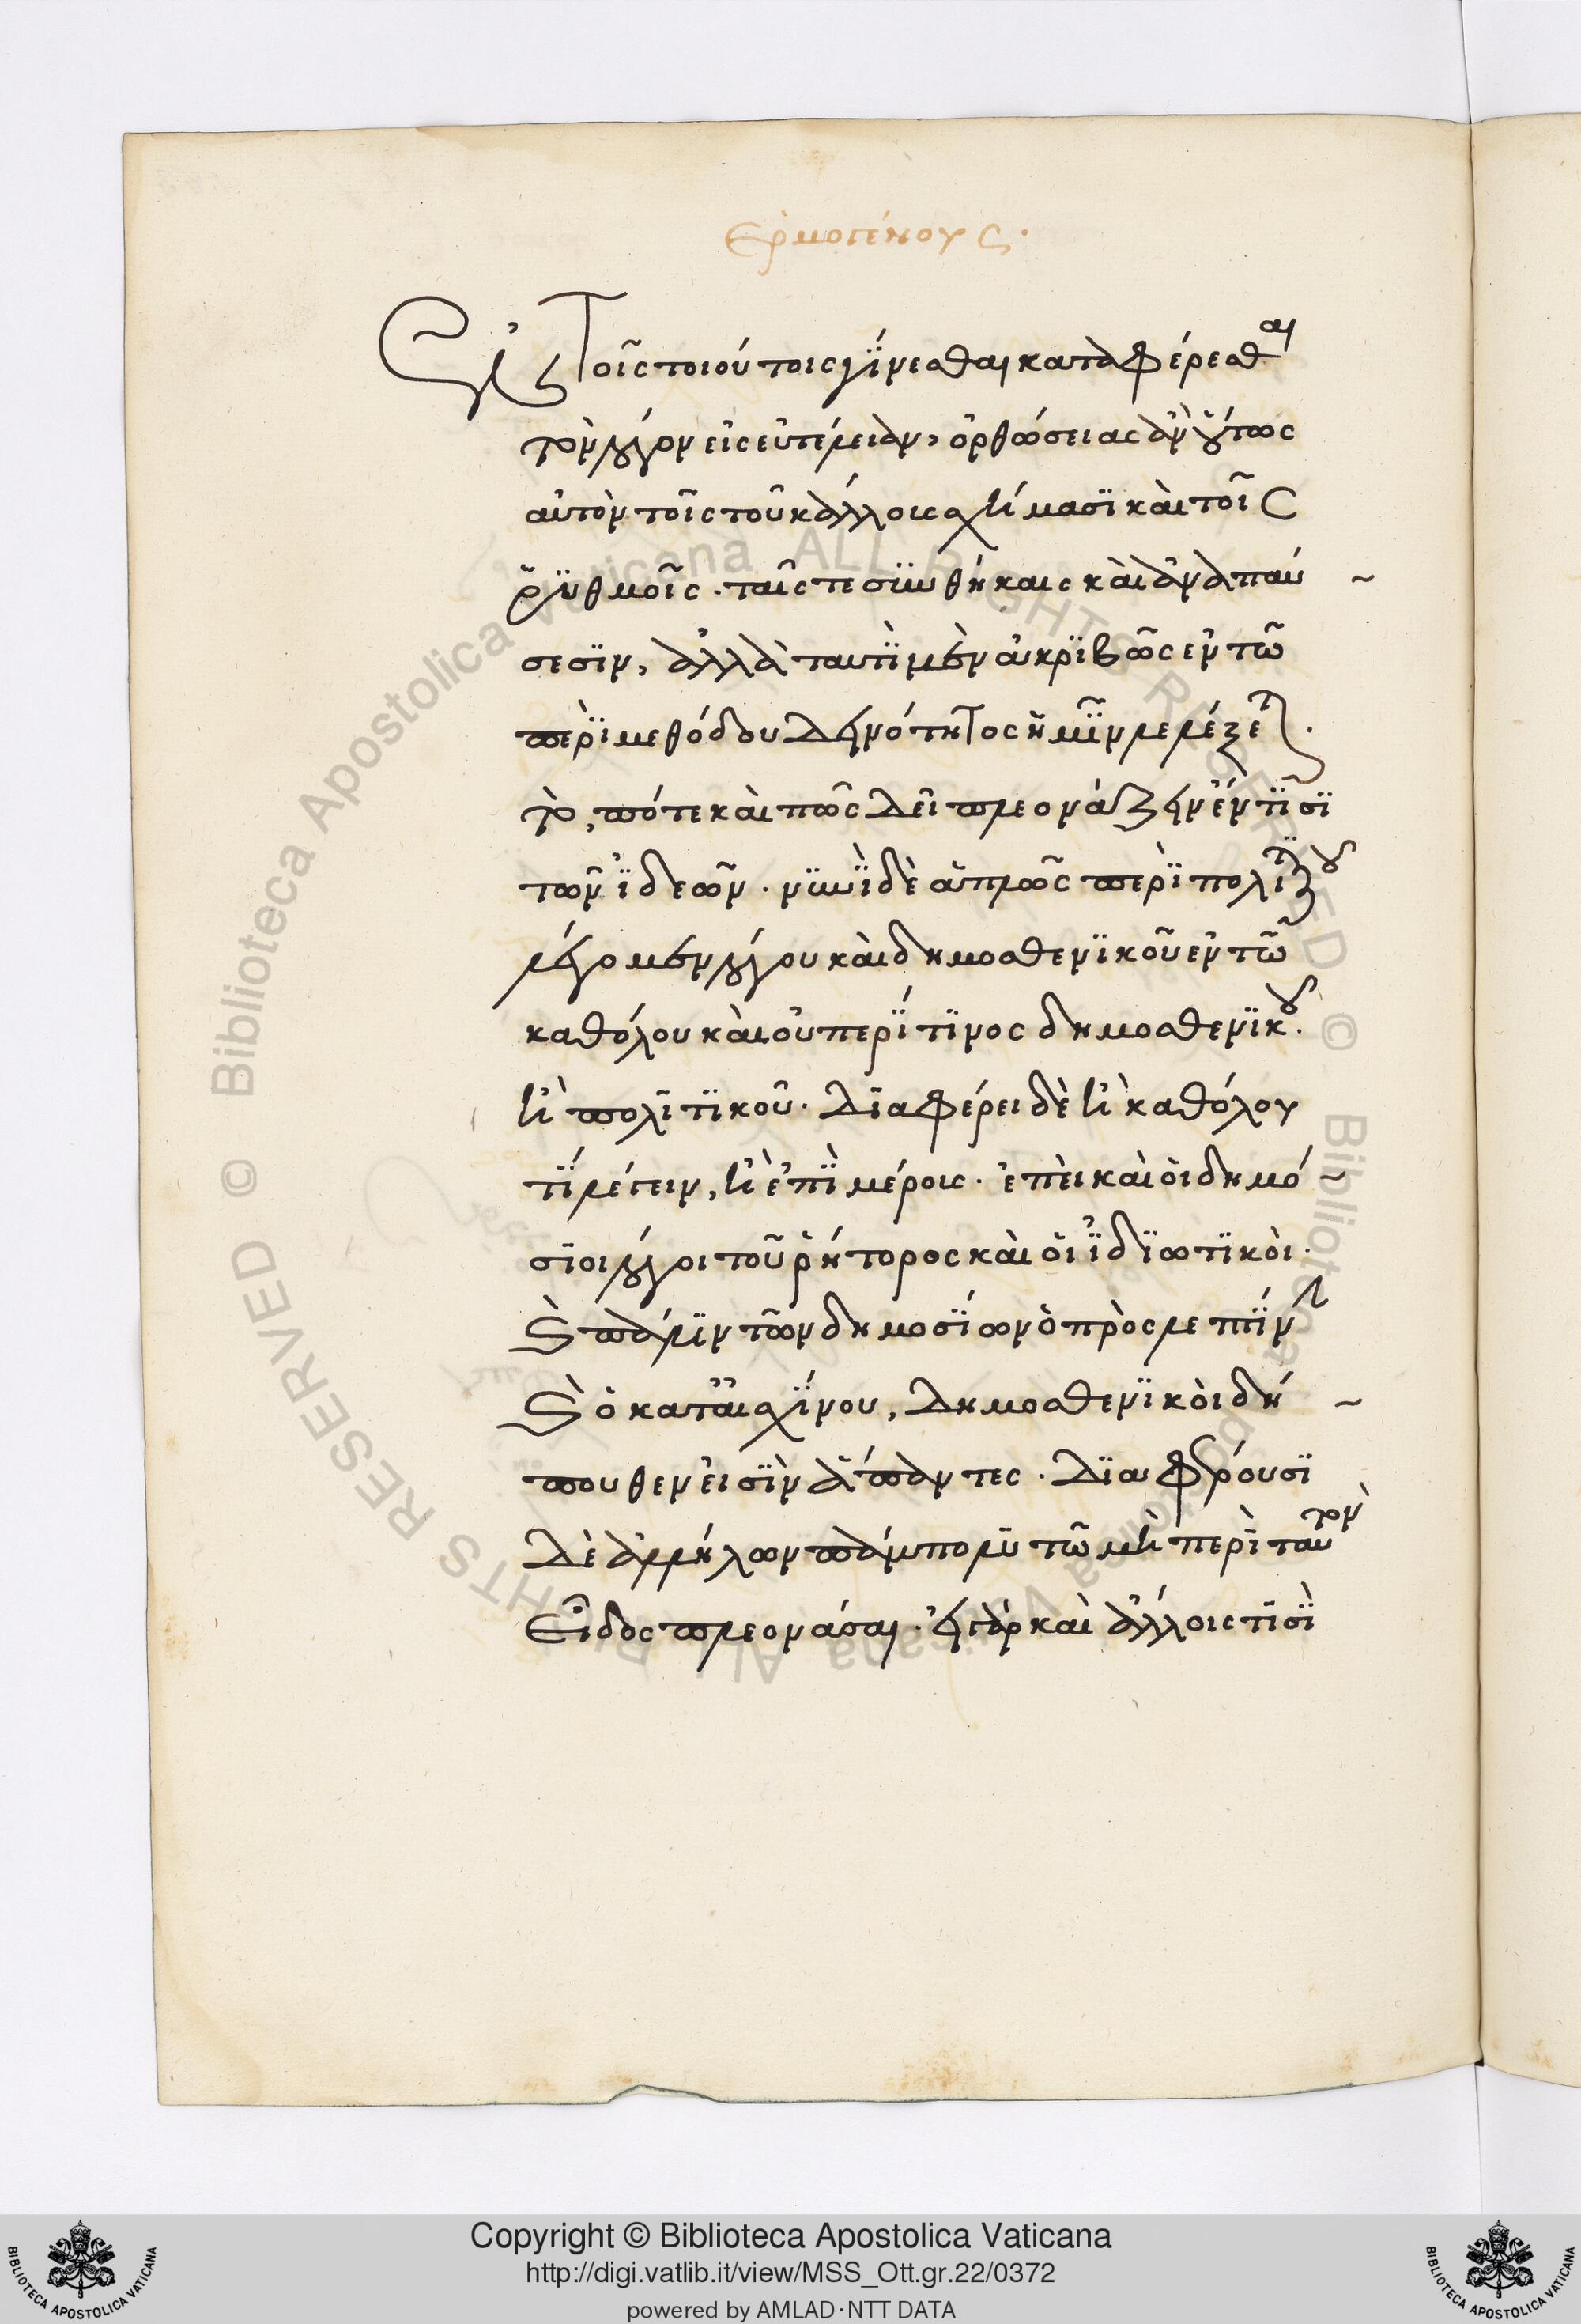 Ερμογένους.
Εἰ Τοῖς τοιούτοις γίνεσθαι καταφέρεσθαι
τὸν λόγον εἰς εὐτέλειαν, ὀρθώσειας ἂν οὕτως
αὐτὸν τοῖς τοῦ κάλλους σχήμασϊ καὶ τοῖς
ῥϋθμοῖς. ταῖς τε συνθήκαις καὶ ἀναπαύ
σεσϊν, ἀλλὰ ταυτὶ μὲν ἀκρϊβῶς ἐν τῶ
περὶ μεθόδου δεινότητος ἡμῖν λελέξεται.
τὸ, πότε καὶ πῶς δεῖ πλεονάζειν ἔν τϊσϊ
τῶν ἰδεῶν. νυνὶ δὲ ἁπλῶς περὶ πολιτικοῦ
λέγομεν λόγου καὶ δημοσθενϊκοῦ ἐν τῶ
καθόλου καὶ οὐ περί τϊνος δημοσθενϊκοῦ.
ἢ πολϊτϊκοῦ. Διαφέρει δὲ ἢ καθόλου
τὶ λέγειν, ἢ ἐπὶ μέρους. ἐπεὶ καὶ οἱ δημό
σϊοι λόγοι τοῦ ῥήτορος καὶ οἱ ἰδϊωτϊκοὶ.
καὶ πάλϊν τῶν δημοσίων ὁ πρὸς λεπτίνην
καὶ ὁ κατ' αἰσχίνου, Δημοσθενϊκοὶ δή
πουθεν εἰσὶν ἅπαντες. Διαφέρουσϊ
Δὲ ἀλλήλων πάμπολυ τῶ μὴ περὶ ταυτὸν
Εἶδος πλεονάσαι. εἰ γὰρ καὶ ἄλλοις τϊσὶ
Copyright © Biblioteca Apostolica Vaticana
http://digi.vatlib.it/view/MSS_Ott.gr.22/0372
powered by AMLAD·NTT DATA
BIBLIOTECA APOSTOLICA VATICANA
BIBLIOTECA APOSTOLICA VATICANA